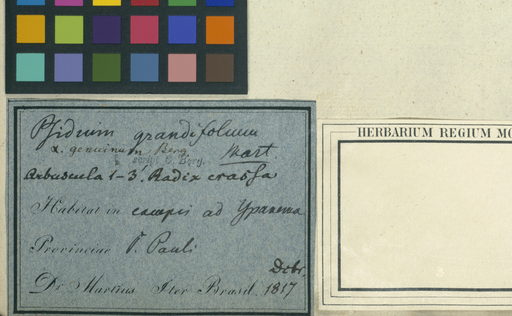 Psidium grandifolium
α. genuinum Berg. Mart
scrips. O. Berg.
Arbuscula 1-3' Radix crassa
Habitat in campis ad Ypanema
Provinciae S. Pauli
Dcbr.
Dr Martius Iter Brasil. 1817
HERBARIUM REGIUM MO